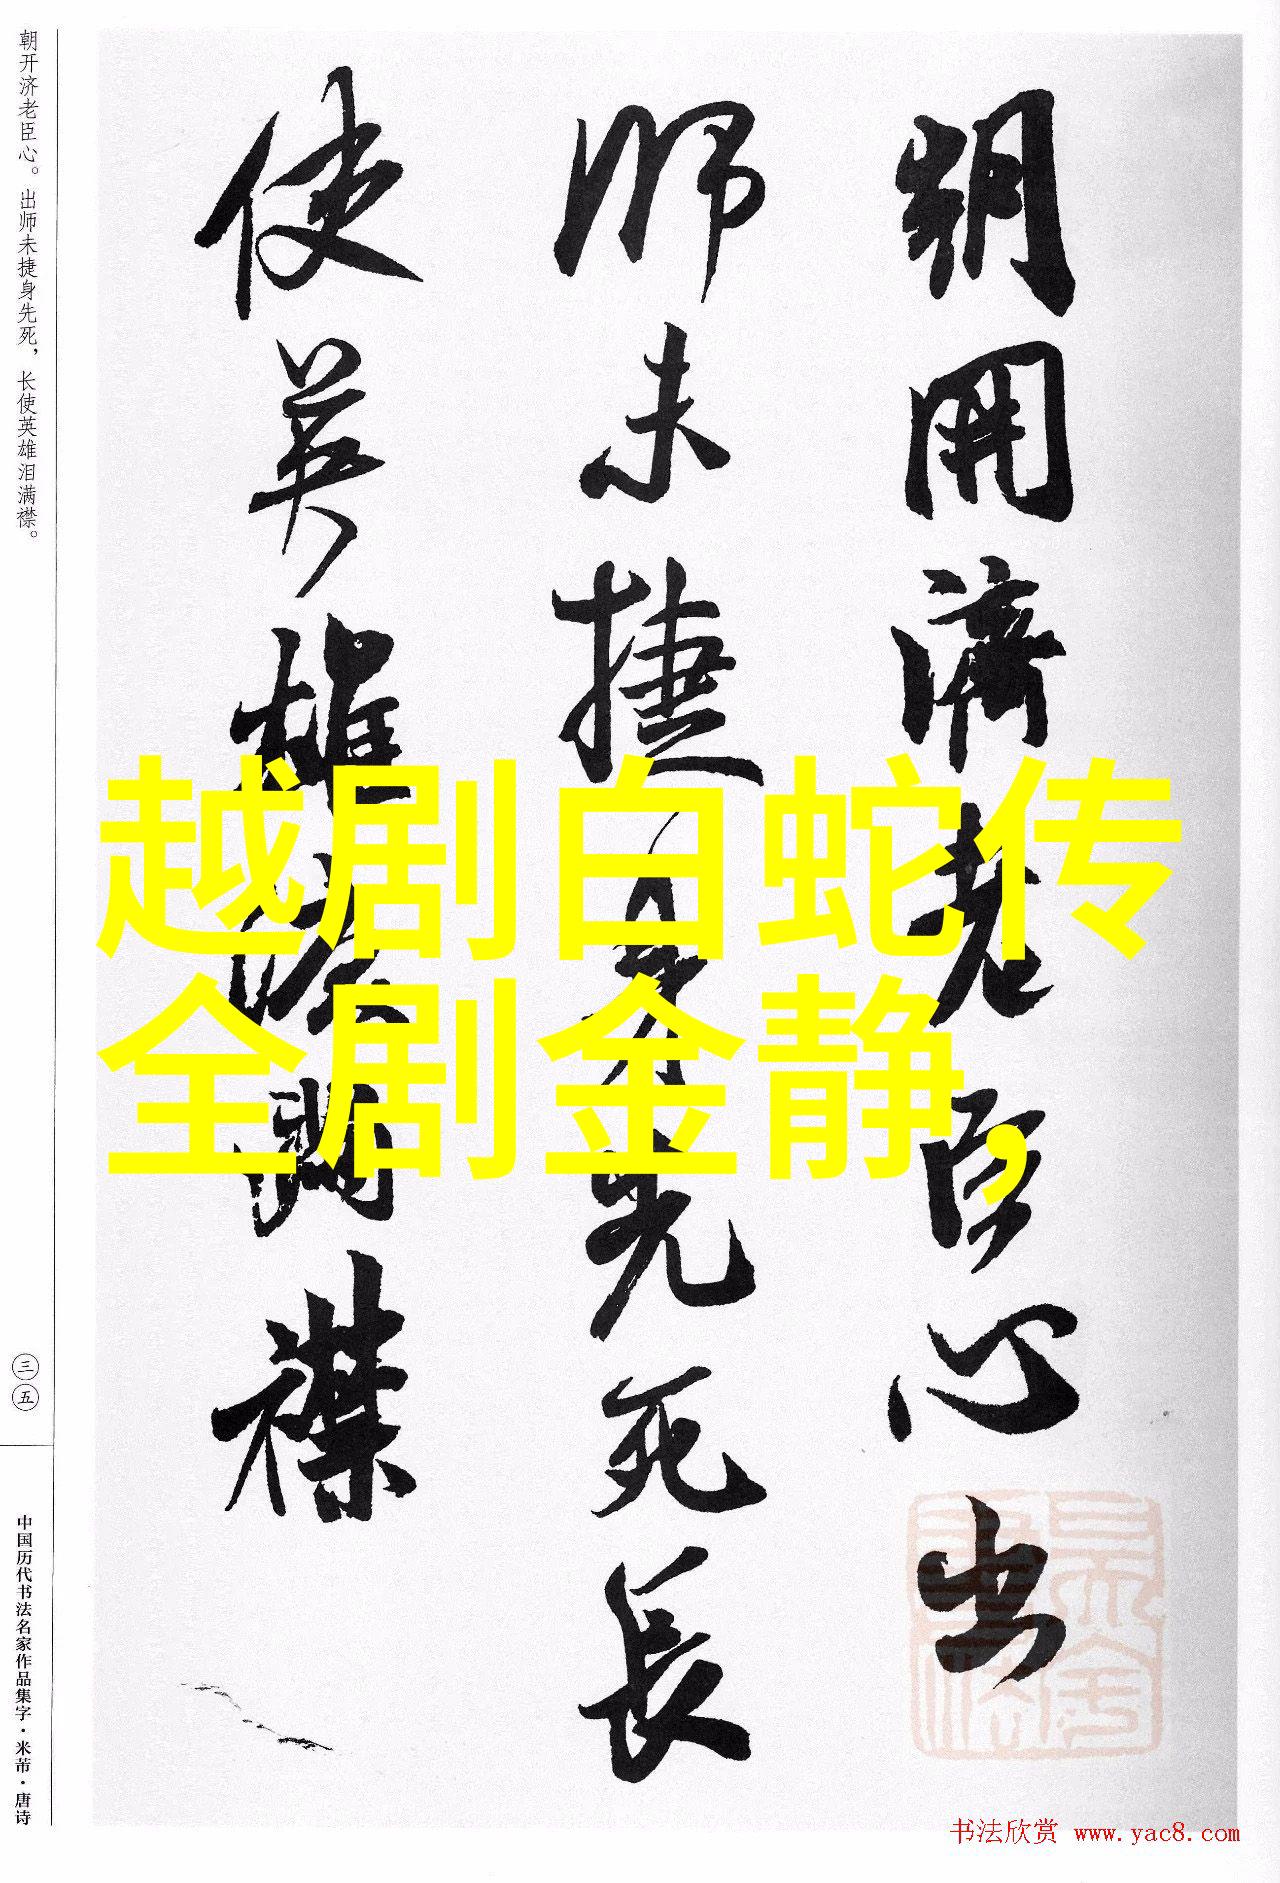 朝开济老臣心。出师未捷身先死，长使英雄泪满襟。
三五
中国历代书法名家作品集字·米芾·唐诗
朝開濟老臣心出
師未捷身先死長
使英雄淚滿襟
越剧白蛇传
全剧金静，
书法欣赏 www.yac8.com